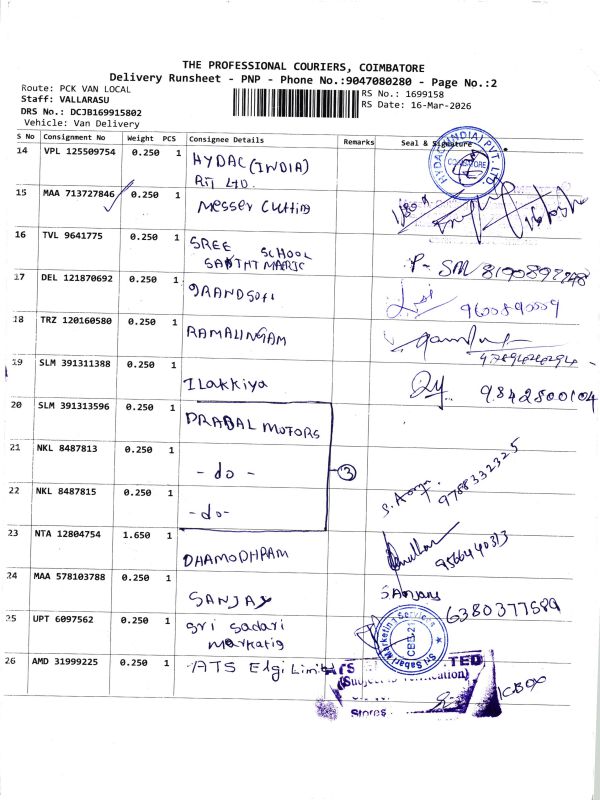 THE PROFESSIONAL COURIERS, COIMBATORE
Delivery Runsheet - PNP - Phone No.:9047080280 - Page No.:2
Route: PCK VAN LOCAL
Staff: VALLARASU
DRS No.: DCJB169915802
Vehicle: Van Delivery
RS No.: 1699158
RS Date: 16-Mar-2026
S No Consignment No Weight PCS Consignee Details Remarks Seal & Signature
14 VPL 125509754 0.250 1 HYDAC (INDIA)
PVT LTD.
HYDAC (INDIA) PVT. LTD.
15 MAA 713727846 0.250 1 Messer Cutting
16 TVL 9641775 0.250 1 SREE SCHOOL
17 DEL 121870692 0.250 1 GRANDSoft
9600890009
18 TRZ 120160580 0.250 1 RAMALINGAM
19 SLM 391311388 0.250 1 Ilakkiya
9842500104
20 SLM 391313596 0.250 1 PRABAL MOTORS
21 NKL 8487813 0.250 1 - do -
3
9788332325
22 NKL 8487815 0.250 1 - do -
23 NTA 12804754 1.650 1 DHAMODHRAM
24 MAA 578103788 0.250 1 SANJAY
6380377589
25 UPT 6097562 0.250 1 Sri Sadari
Marketing
Sri Sabari Marketing Services
CBE-21
26 AMD 31999225 0.250 1 ATS Elgi Limited
Stores